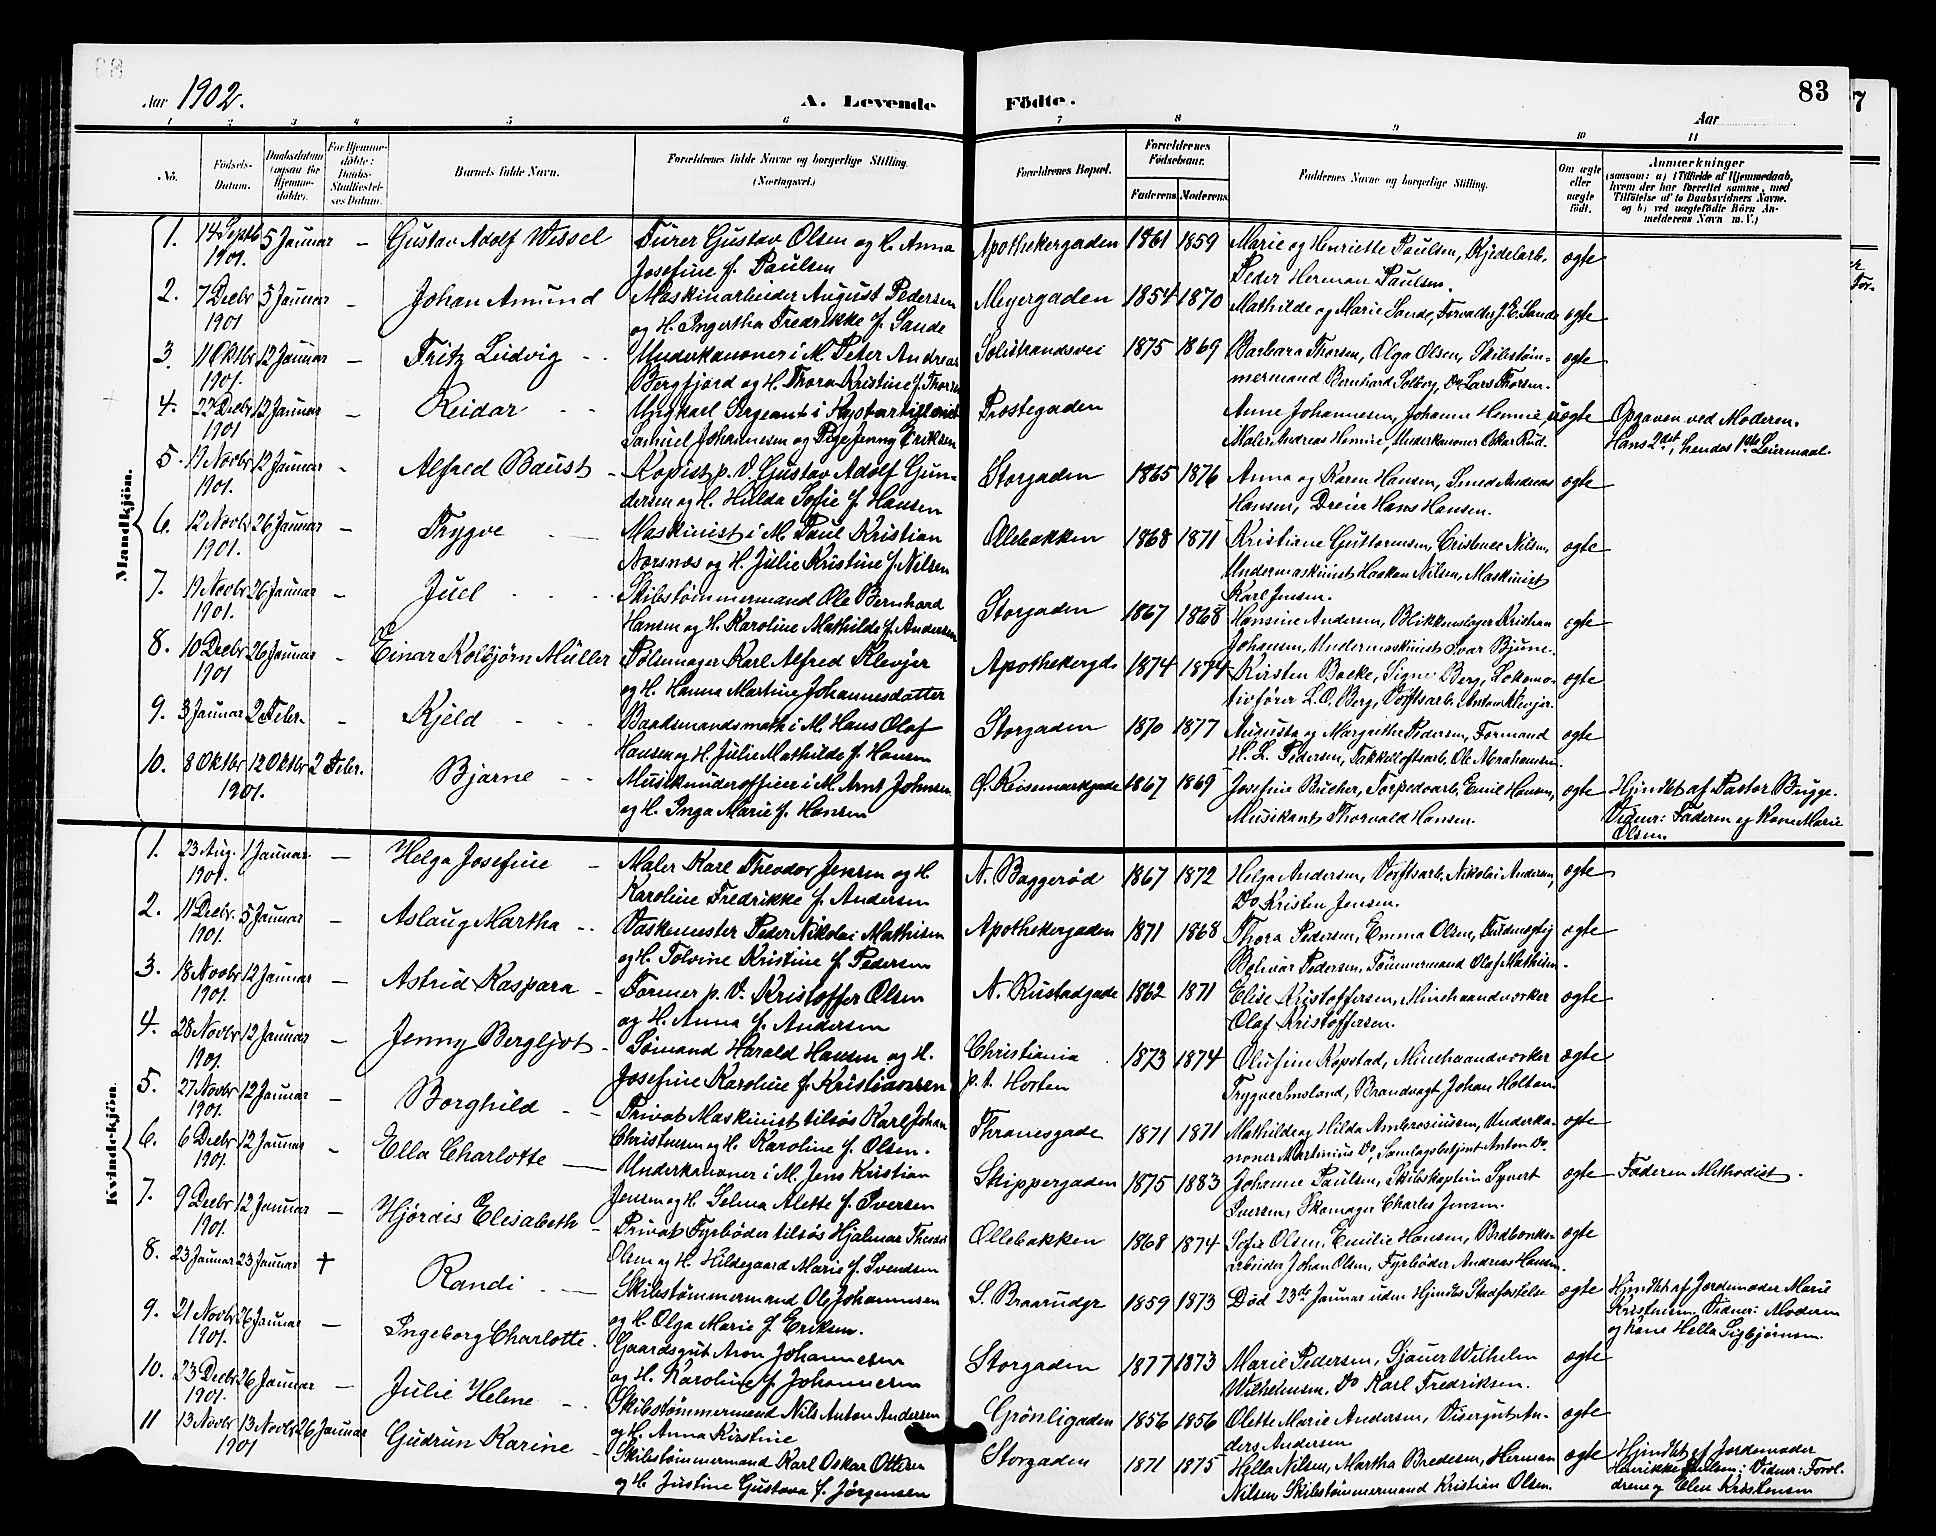 Aar 1902.
A. Levende Födte.
83
Aar
1 2 3 4 5 6 7 8 9 10 11
No.
Födsels-Datum.
Daabsdatum (ogsaa for Hjemmedöbte).
For Hjemmedöbte: Daabs-Stadfæstelses Datum.
Barnets fulde Navn.
Forældrenes fulde Navne og borgerlige Stilling. (Næringsvei.)
Forældrenes Bopæl.
Forældrenes Födselsaar.
Faderens Moderens
Faddernes Navne og borgerlige Stilling.
Om ægte eller uægte födt.
Anmærkninger
(saasom: a) i Tilfælde af Hjemmedaab, hvem der har forrettet samme, med Tilföielse af to Daabsvidners Navne, og b) ved uægtefödte Börn Anmelderens Navn m. V.)
Mandkjön.
1. 14 Septb 1901. 5 Januar – Gustav Adolf Wessel
Furer Gustav Olsen og H. Anna
Josefine f. Paulsen
Apothekergaden 1861 1859
Marie og Henriette Paulsen, Kjedelarb.
Peder Herman Paulsen.
ægte
2. 7 Decbr 1901 5 Januar – Johan Amund
Maskinarbeider August Pedersen
og H. Ingertha Fredrikke f. Sande
Meyergaden 1854 1870
Mathilde og Marie Sande, Forvalter J. C. Sande
ægte
3. 11 Oktbr 1901. 12 Januar – Fritz Ludvig
Underkanoner i M. Peter Andreas
Bergfjord og H. Thora Kristine f. Thorsen
Solistrandsvei 1875 1869
Barbara Thorsen, Olga Olsen, Skibstøm-
mermand Bernhard Solberg, Do Lars Thorsen.
ægte
4. 22 Decbr 1901 12 Januar – Reidar
Ugk̄ael Sergeant i Kystartilleriet
Samuel Johannesen og Pige Jenny Eriksen
Præstegaden
Anne Johannesen, Johanne Hennie,
Maler Andreas Hennie, Underkanoner Oskar Rud.
uægte
Opgaven ved Moderen.
Hans 2det, hendes 1ste Leiermaal.
5. 19 Novbr 1901. 12 Januar – Alfred Baust
Kopist p. V. Gustav Adolf Gun-
dersen og H. Hilda Sofie f. Hansen
Storgaden 1865 1876
Anna og Karen Hansen, Smed Andreas
Hansen, Dreier Hans Hansen.
ægte
6. 12 Novbr 1901. 26 Januar – Trygve
Maskinist i M. Paul Kristian
Aarsnæs og H. Julie Kristine f. Nilsen
Ollebakken 1868 1871
Kristiane Guttormsen, Cristence Nilsen,
Undermaskinist Haakon Nilsen, Maskinist
Karl Jensen.
ægte
7. 19 Novbr 1901. 26 Januar – Juel
Skibstømmermand Ole Bernhard
Hansen og H. Karoline Mathilde f. Andersen
Storgaden 1867 1868
Hansine Andersen, Blikkenslager Kristian
Johansen, Undermaskinist Ivar Bjune.
ægte
8. 10 Decbr 1901 26 Januar – Einar Kolbjørn Müller
Pølsemager Karl Alfred Klevjer
og H. Hanna Martine Johannesdatter
Apothekergd. 1874 1874
Kirsten Bakke, Signe Berg, Lokomo-
tivfører L. O. Berg, Værftsarb. Anton Klevjer.
ægte
9. 3 Januar 2 Febr. – Kjeld
Baadsmandsmath i M. Hans Olaf
Hansen og H. Julie Mathilde f. Hansen
Storgaden 1870 1877
Augusta og Margrethe Pedersen, Formand
H. L. Pedersen, Takkeloftsarb. Ole Abrahamsen.
ægte
10. 8 Oktbr 12 Oktbr 1901. 2 Febr. Bjarne
Musikunderofficer i M. Arnt Johnsen
og H. Inga Marie f. Hansen
Ø. Keisemarkgade 1867 1869
Josefine Bucher, Torpedoarb. Emil Hansen,
Musikant Thorvald Hansen.
ægte
Hjmdbt af Pastor Bugge.
Vidner: Faderen og Kone Marie
Olsen.
Kvindekjön.
1. 23 Aug. 1901. 1 Januar – Helga Josefine
Maler Karl Theodor Jensen og H.
Karoline Fredrikke f. Andersen
N. Baggerød 1867 1872
Helga Andersen, Værftsarb. Nikolai Andersen,
Do Kristen Jensen.
ægte
2. 11 Decbr. 1901. 5 Januar – Aslaug Martha
Vaskemester Peder Nikolai Mathisen
og H. Tolvine Kristine f. Pedersen
Apothekergaden 1871 1868
Thora Pedersen, Emma Olsen,
Bolivar Pedersen, Tømmermand Olaf Mathisen.
ægte
3. 18 Novbr 1901. 12 Januar – Astrid Kaspara
Former p. V. Kristoffer Olsen
og H. Anna f. Andersen
N. Rustadgade 1862 1871
Elise Kristoffersen, Minehaandverker
Olaf Kristoffersen.
ægte
4. 28 Novbr 1901. 12 Januar – Jenny Bergljot
Sømand Harald Hansen og H.
Josefine Karoline f. Kristiansen
Christiania
p.t. Horten 1873 1874
Olufine Kopstad, Minehaandverker
Trygve Imsland, Brandvagt Johan Holtan.
ægte
5. 27 Novbr 1901. 12 Januar – Borghild
Privat Maskinist tilsøs Karl Johan
Christensen og H. Karoline f. Olsen.
Thranesgade 1871 1871
Mathilde og Hilda Ambrosiussen, Underka-
noner Martinius Do, Samlagsbetjent Anton Do.
ægte
6. 6 Decbr 1901. 12 Januar – Ella Charlotte
Underkanoner i M. Jens Kristian
Jensen og H. Selma Alette f. Iversen
Skippergaden 1875 1883
Johanne Paulsen, Skibskaptein Syvert
Iversen, Skomager Charles Jensen.
ægte
Faderen Methodist.
7. 9 Decbr 1901. 12 Januar – Hjördis Elisabeth
Privat Fyrbøder tilsøs Hjalmar
Olsen og H. Hildegaard Marie f. Svendsen
Ollebakken 1868 1874
Sofie Olsen, Emilie Hansen,
arbeider Johan Olsen, Fyrbøder Andreas Hansen.
ægte
8. 23 Januar 23 Januar † Randi
Skibstømmermand Ole Johannesen
og H. Olga Marie f. Eriksen.
S. Braarudgr 1859 1873
Død 23de Januar uden Hjmdbts Stadfæstelse
ægte
Hjmdbt af Jordemoder Marie
Kristensen, Vidner: Moderen
og Kone Hella Sigbjørnsen.
9. 21 Novbr 1901. 26 Januar – Ingeborg Charlotte.
Gaardsgut Aron Johannesen
og H. Karoline f. Johannesen
Storgaden 1877 1873
Marie Pedersen, Sjauer Wilhelm
Wilhelmsen, Do Karl Fredriksen.
ægte
10. 23 Decbr 1901. 26 Januar – Julie Helene
Skibstømmermand Nils Anton Andersen
og H. Anna Kirstine
Grönligaden 1856 1856
Olette Marie Andersen, Visergut An-
ders Andersen
ægte
11 13 Novbr 13 Novbr 1901 26 Januar Gudrun Karine
Skibstømmermand Karl Oskar Ottesen
og H. Justine Gustava f. Jørgensen
Storgaden 1871 1875
Hella Nilsen, Martha Bredesen, Herman
Nilsen Skibstømmermand Kristian Olsen.
ægte
Hjmdbt af Jordemoder
Henrikke Paulsen: Vidner: Foræl-
drene og Elen Kristensen